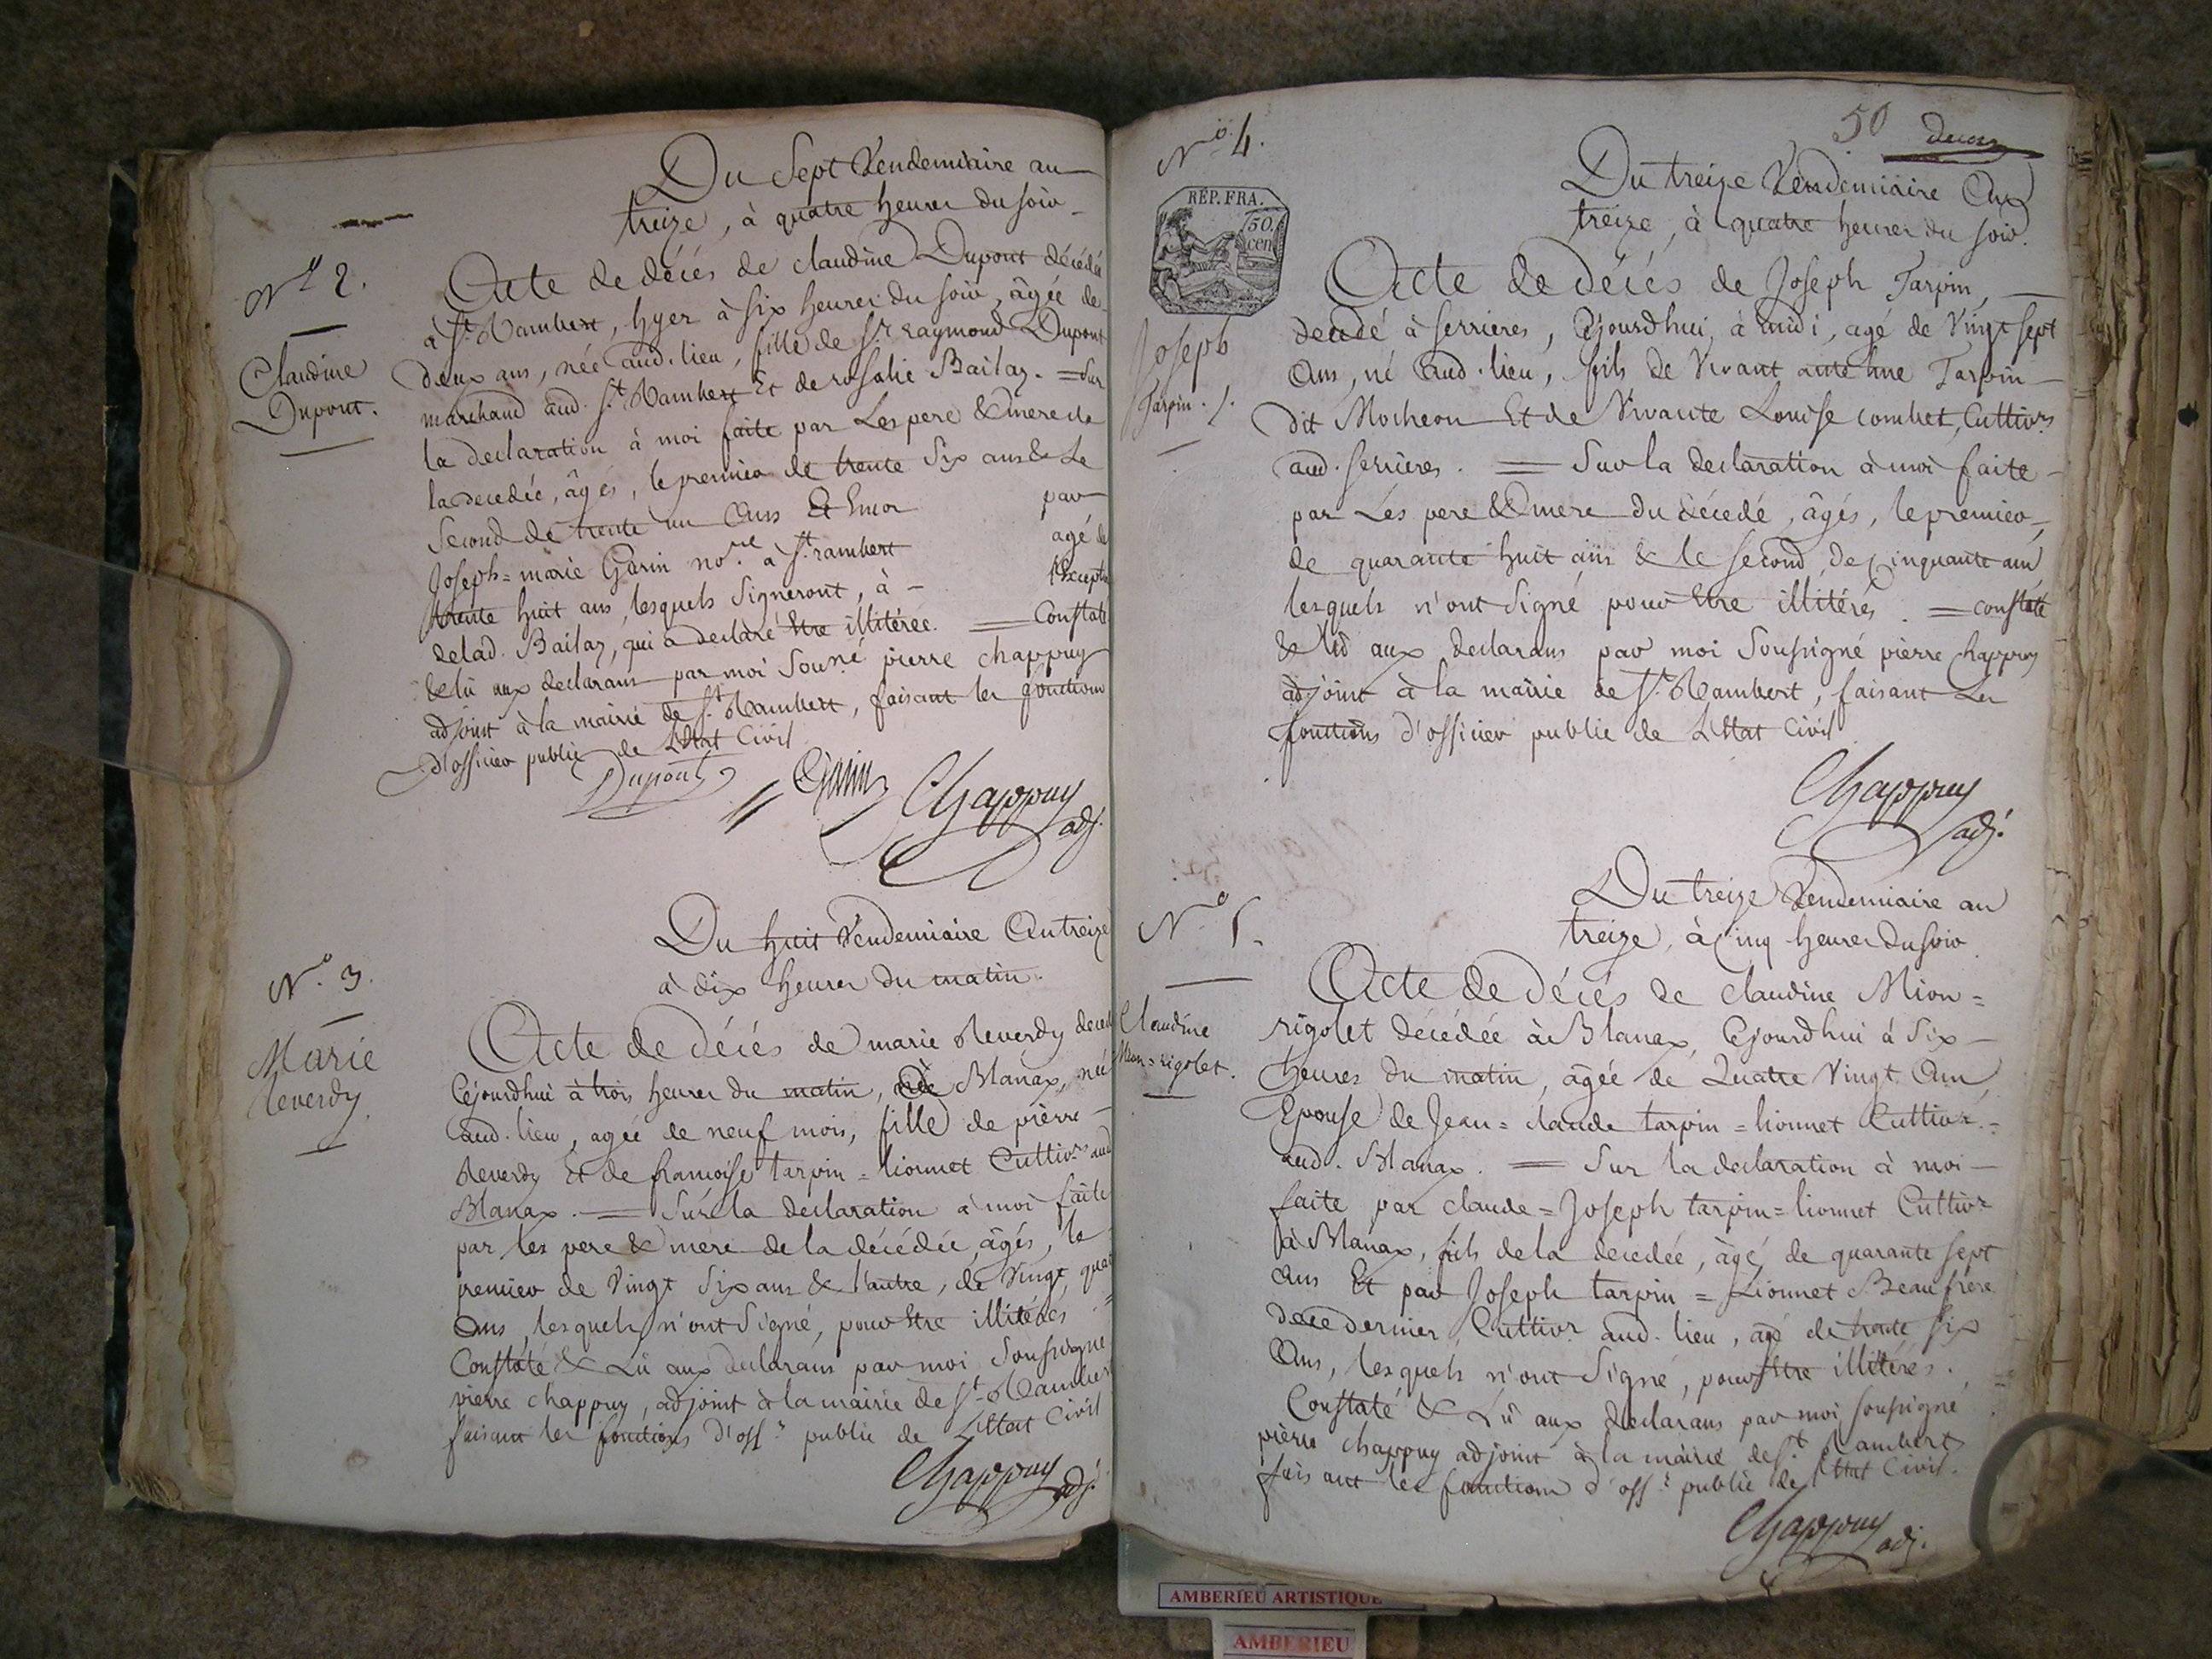 Du Sept Vendemiaire an
treize, à quatre heures du soir
N.o 2.
Claudine
Dupont.
Acte de décés de claudine Dupont décédée
à St. Rambert, hyer à six heures du soir, âgée de
deux ans, née aud. lieu, fille de Sr. raymond Dupont
marchand aud. St. Rambert Et de rosalie Bailaz. = Sur
la declaration à moi faite par Les pere & mere de
la decedée, âgés, le premier de trente Six ans & Le
Second de trente un Ans Et par
Joseph=marie Garin no.re à St. rambert agé de
trente huit ans, lesquels Signeront, à - l'exception
delad. Bailaz, qui a declaré Etre illitérée. = Constaté
& lû aux declarans par moi Sousné pierre chappuy
adjoint à la mairie de St. Rambert, faisant les fonctions
d'officier public de L'Etat Civil
Dupont Garin Chappuy
adj.
Du huit Vendemiaire An treize
à dix heures du matin.
N.o 3.
Marie
Reverdy
Acte de décés de marie Reverdy deced
Cejourdhui à trois heures du matin, à Blanax, née
aud. lieu, agée de neuf mois, fille de pierre
Reverdy Et de francoise tarpin=lionnet Cultivrs aud
Blanax. = Sur la declaration à moi faite
par les pere & mere de la décédée, âgés, le
premier de Vingt Six ans & l'autre, de Vingt quat
Ans, lesquels n'ont Signé, pour Etre illitérés =
Constaté & Lû aux declarans par moi Soussigné
pierre chappuy, adjoint à la mairie de St. Rambert
faisant les fonctions d'offr. public de L'Etat Civil
Chappuy adj.
50
N.o 4.
RÉP. FRA.
50.
cen
Joseph
Tarpin.
Du treize Vendemiaire An
treize, à quatre heures du soir.
Acte de décés de Joseph Tarpin,
decedé à serrieres, Cejourdhui, à midi, agé de Vingt sept
Ans, né aud. lieu, fils de Vivant anthelme Tarpin
dit Mocheon Et de Vivante Louise combet, Cultivrs
aud. serrieres. = Sur la declaration à moi faite
par Les pere & mere du décedé, âgés, le premier
de quarante huit ans & le second, de Cinquante ans
lesquels n'ont Signé pour Etre illitérés. = constaté
& lû aux declarans par moi Soussigné pierre chappuy
adjoint à la mairie de St. Rambert, faisant Les
fonctions d'officier public de L'Etat Civil
Chappuy
adj.
Du treize Vendemiaire an
treize, à Cinq heures du soir
N.o 5.
Claudine
Mion=rigolet.
Acte de décés de claudine Mion=
rigolet décédée à Blanax, Cejourdhui à Six
heures du matin, âgée de Quatre Vingt Ans
Epouse de Jean=claude tarpin=lionnet Cultivr.
aud. Blanax. = Sur la declaration à moi
faite par claude=Joseph tarpin=lionnet Cultivr
à Blanax, fils de la decedée, âgé de quarante sept
ans Et par Joseph tarpin=Lionnet Beaufrere
de ce dernier, Cultivr. aud. lieu, agé de trente Six
Ans, lesquels n'ont Signé, pour Etre illitérés.
Constaté & Lû aux declarans par moi soussigné
pierre chappuy adjoint à la mairie de St. Rambert
faisant les fonctions d'offr. public de L'Etat Civil.
Chappuy adj.
AMBERIEU ARTISTIQUE
AMBERIEU